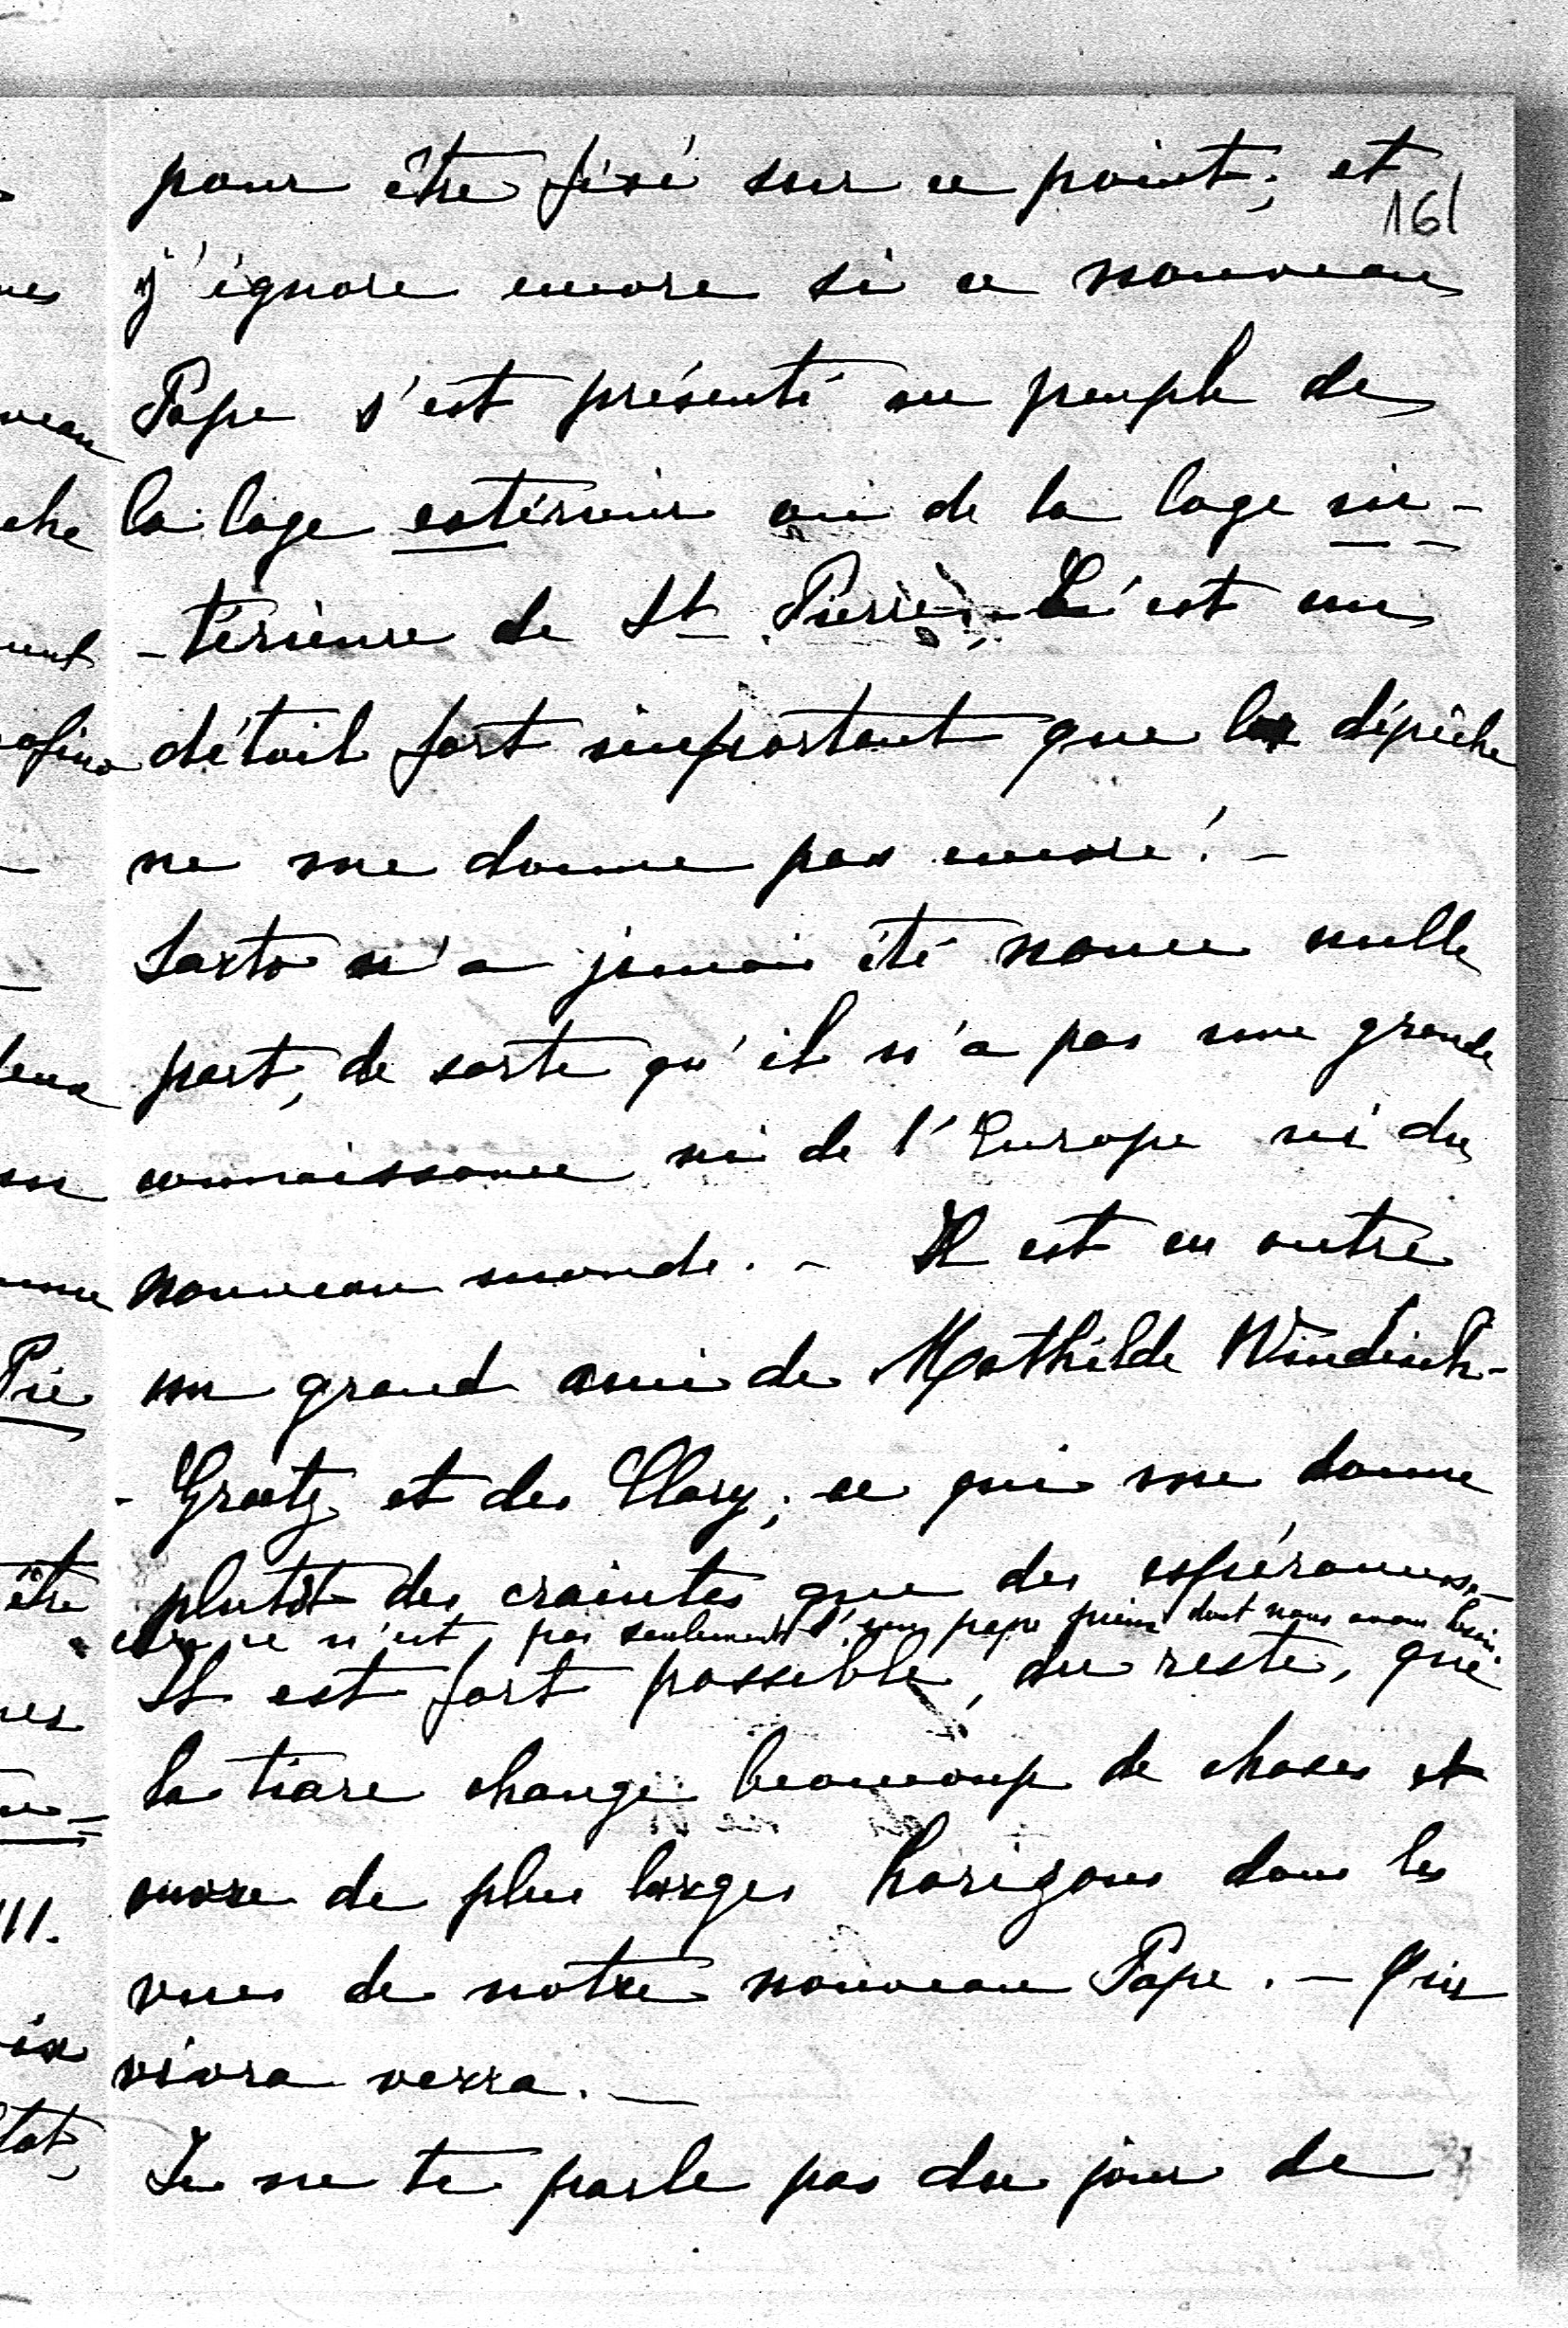 pour être fixé sur ce point; et
161
j'ignore encore si ce nouveau
Pape s'est présenté au peuple de
la loge extérieur ou de la loge in-
-térieure de St Pierre. C'est un
détail fort important que la dépêche
ne me donne pas encore! -
Sarto n'a jamais été nonce nulle
part, de sorte qu'il n'a pas une grande
connaissance ni de l'Europe ni du
nouveau monde. - Il est en outre
un grand ami de Mathilde Windisch-
- Graetz et des Clary; ce qui me donne
plutôt des craintes que des espérances. -
car ce n'est pas seulement d'un pape pieux dont nous avons besoin.
Il est fort possible, du reste, que
la tiare change beaucoup de choses et
ouvre de plus larges horizons dans les
vues de notre nouveau Pape. - Qui
vivra verra. -
Je ne te parle pas du jour de